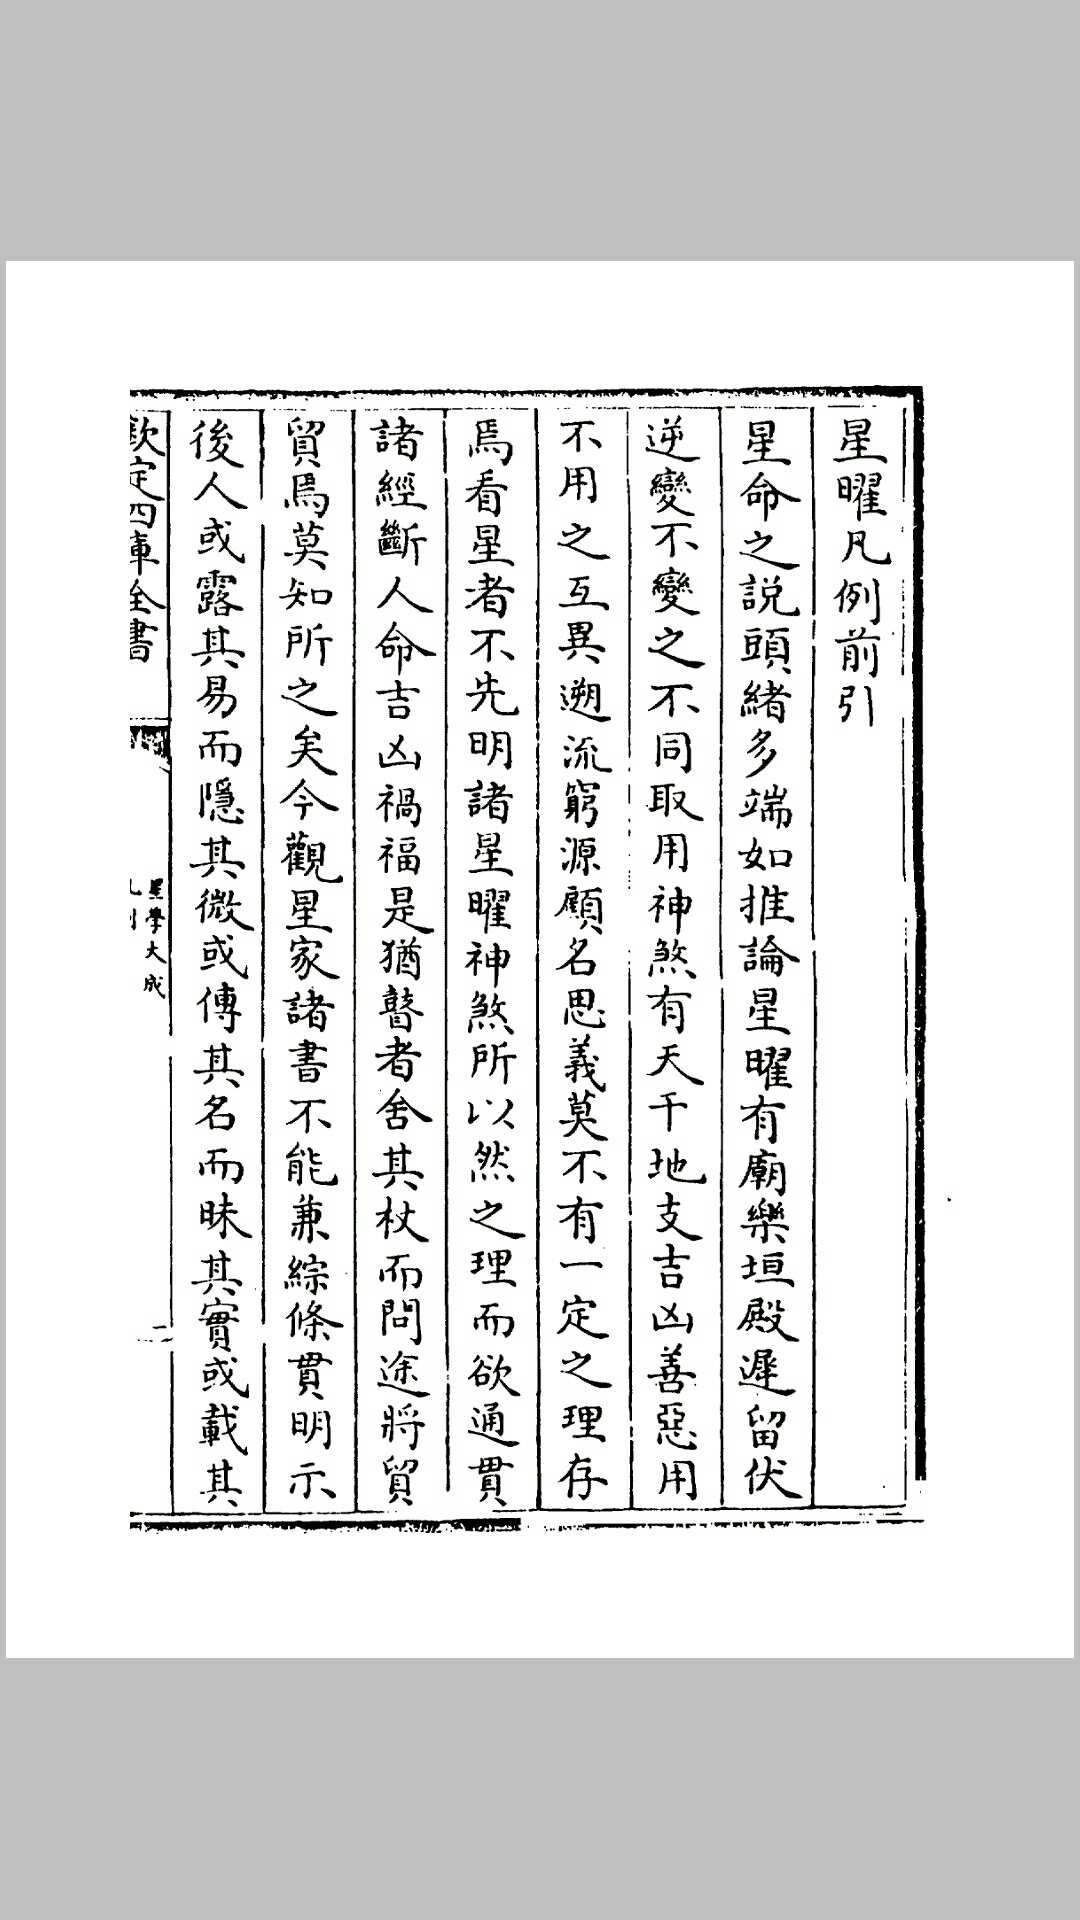 星曜凡例前引
星命之説頭緒多端如推論星曜有廟樂垣殿遲留伏
逆變不變之不同取用神煞有天干地支吉凶善惡用
不用之互異遡流窮源顧名思義莫不有一定之理存
焉看星者不先明諸星曜神煞所以然之理而欲通貫
諸經斷人命吉凶禍福是猶瞽者舍其杖而問途將貿
貿焉莫知所之矣今觀星家諸書不能兼綜條貫明示
後人或露其易而隱其微或傳其名而昧其實或載其
欽定四庫全書
星學大成
凡例
二